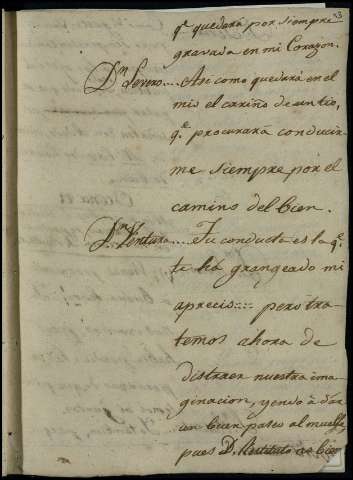 53
qe quedará por siempre
gravada en mi Corazon.
Dn Severo.... Asi como quedará en el
mio el cariño de un tio,
qe procurará conducir-
me siempre por el
camino del bien.
Dn Ventura.... Tu conducta es la qe
te ha grangeado mi
aprecio.... pero tra-
temos ahora de
distraer nuestra ima-
ginacion, yendo á dar
un buen paseo al muelle,
pues D.